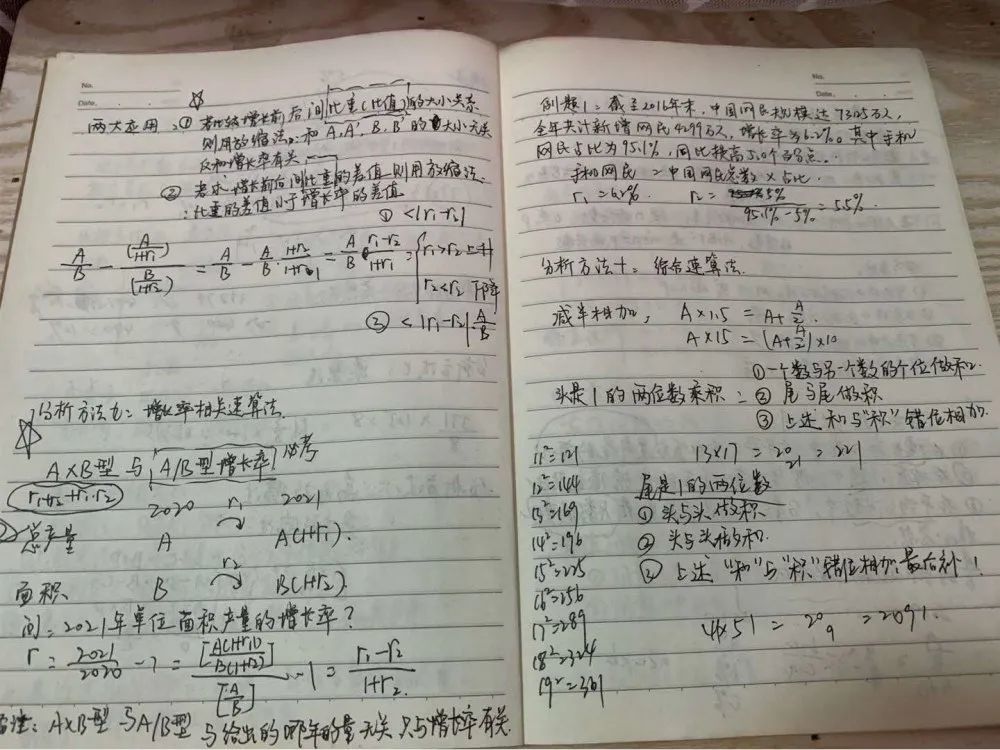 No.
Date.
☆
两大应用:① 若比较增长前后间比重(比值)的大小关系
则用放缩法:和A,A',B,B'的大小无关
反和增长率有关
② 若求增长前后间比重的差值则用放缩法
:比重的差值小于增长率的差值
① <|r₁-r₂|
A/B - (A/(1+r₁))/(B/(1+r₂)) = A/B - A/B·(1+r₂)/(1+r₁) = A/B·(r₁-r₂)/(1+r₁) = { r₁>r₂ 上升
r₂<r₂ 下降
② <|r₁-r₂|A/B
分析方法七:增长率相关速算法
☆
A×B型 与 A/B型 增长率 必考
r₁+r₂+r₁·r₂
2020 r₁ 2021
总产量 A A(1+r₁).
r₂
面积 B B(1+r₂)
问:2021年单位面积产量的增长率?
r = 2021/2020 - 1 = [A(1+r₁)/B(1+r₂)]/[A/B] - 1 = (r₁-r₂)/(1+r₂)
注:A×B型 与A/B型 与给出的哪年的量无关 只与增长率有关
No.
Date.
例题1:截至2016年末,中国网民规模达73125万人,
全年共计新增网民4299万人,增长率为6.2%。其中手机
网民占比为95.1%,同比提高5.0个百分点。
手机网民 = 中国网民总数×占比
r₁=6.2% r₂= 5%/(95.1%-5%)=5.5%.
分析方法十:综合速算法.
减半相加: A×1.5 = A+A/2.
A×15 = (A+A/2)×10
①一个数与另一个数的个位做和.
头是1的两位数乘积:② 尾与尾做积
③ 上述"和"与"积"错位相加.
11²=121 13×17 = 20 21 = 221
12²=144 尾是1的两位数
13²=169 ① 头与头做积
14²=196 ② 头与头做和.
15²=225 ③ 上述"和"与"积"错位相加,最后补1
16²=256
17²=289 41×51 = 20 9 = 2091.
18²=324
19²=361